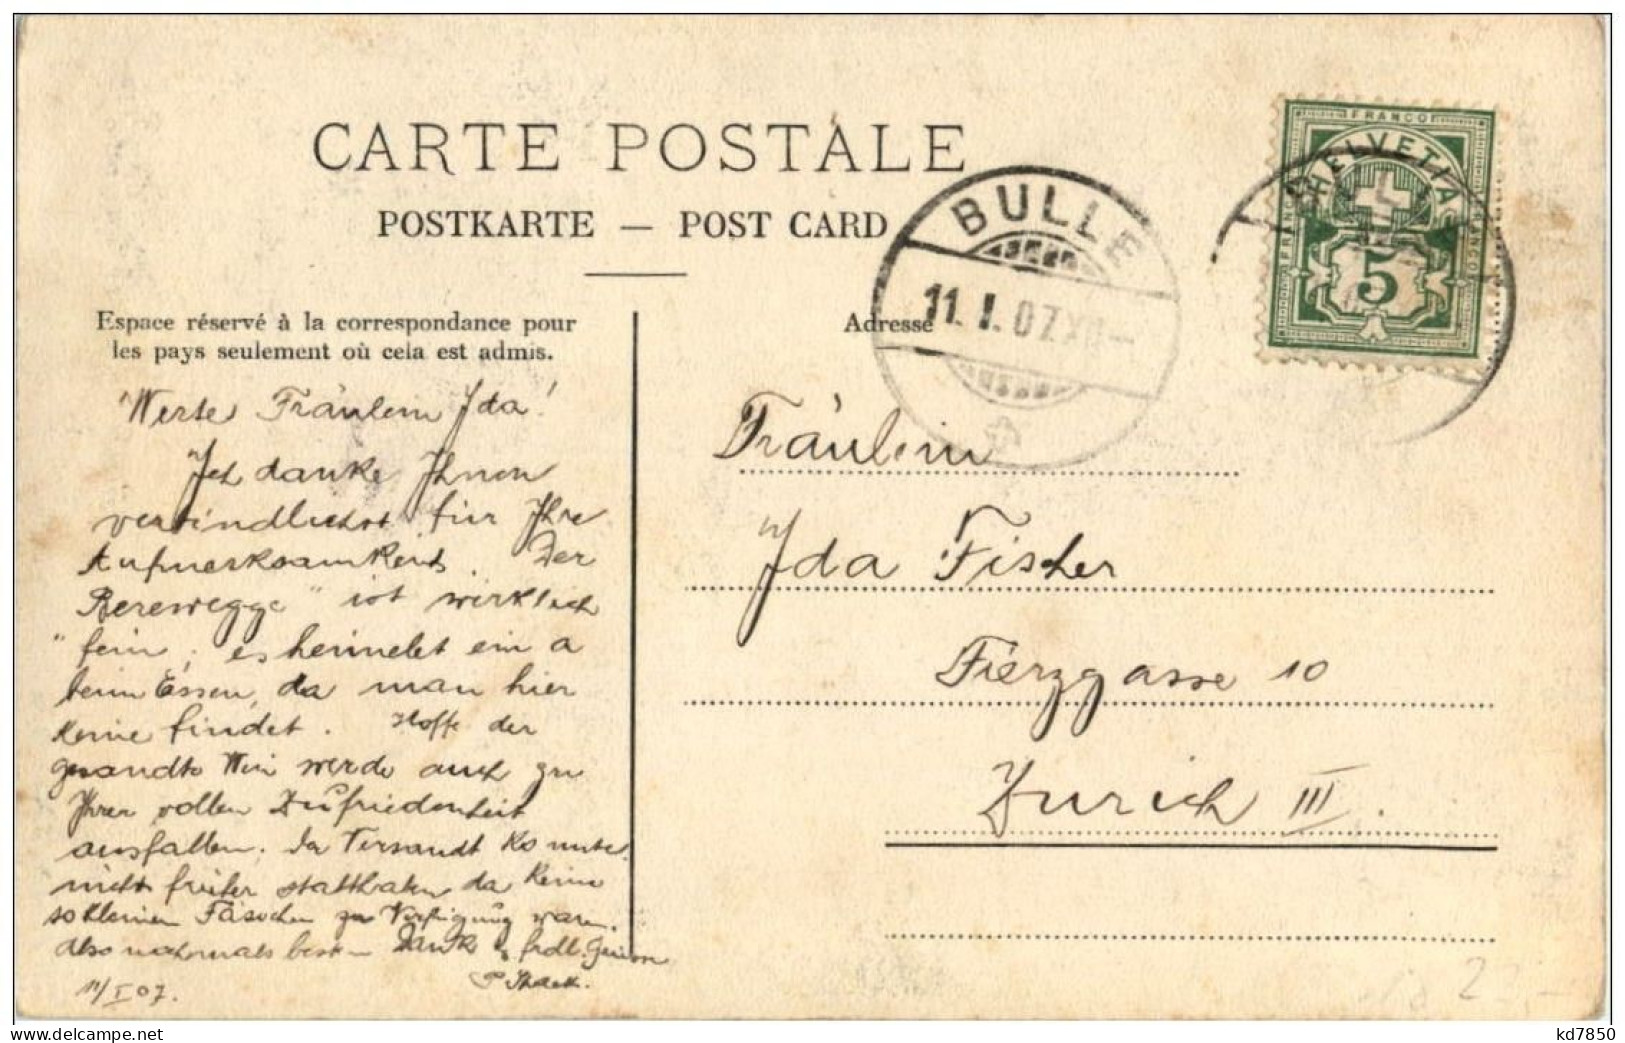 CARTE POSTALE
POSTKARTE — POST CARD
Espace réservé à la correspondance pour
les pays seulement où cela est admis.
Adresse
BULLE
11. I. 07
FRANCO
HELVETIA
5
Werte Fräulein Ida!
Ich danke Ihnen
verbindlichst für Ihre
Aufmerksamkeit. Der
ist wirklich
fein; es heimelet ein a
beim Essen, da man hier
keine findet. Hoffe der
gesandte Wein werde auch zu
Ihrer vollen Zufriedenheit
ausfallen. Der Versandt konnte
nicht früher statthaben da keine
so kleinen Fässchen zur Verfügung waren.
Also nochmals besten Dank & frdl.
11/I 07.
Fräulein
Ida Fischer
Fierzgasse 10
Zürich III.
2
kd7850